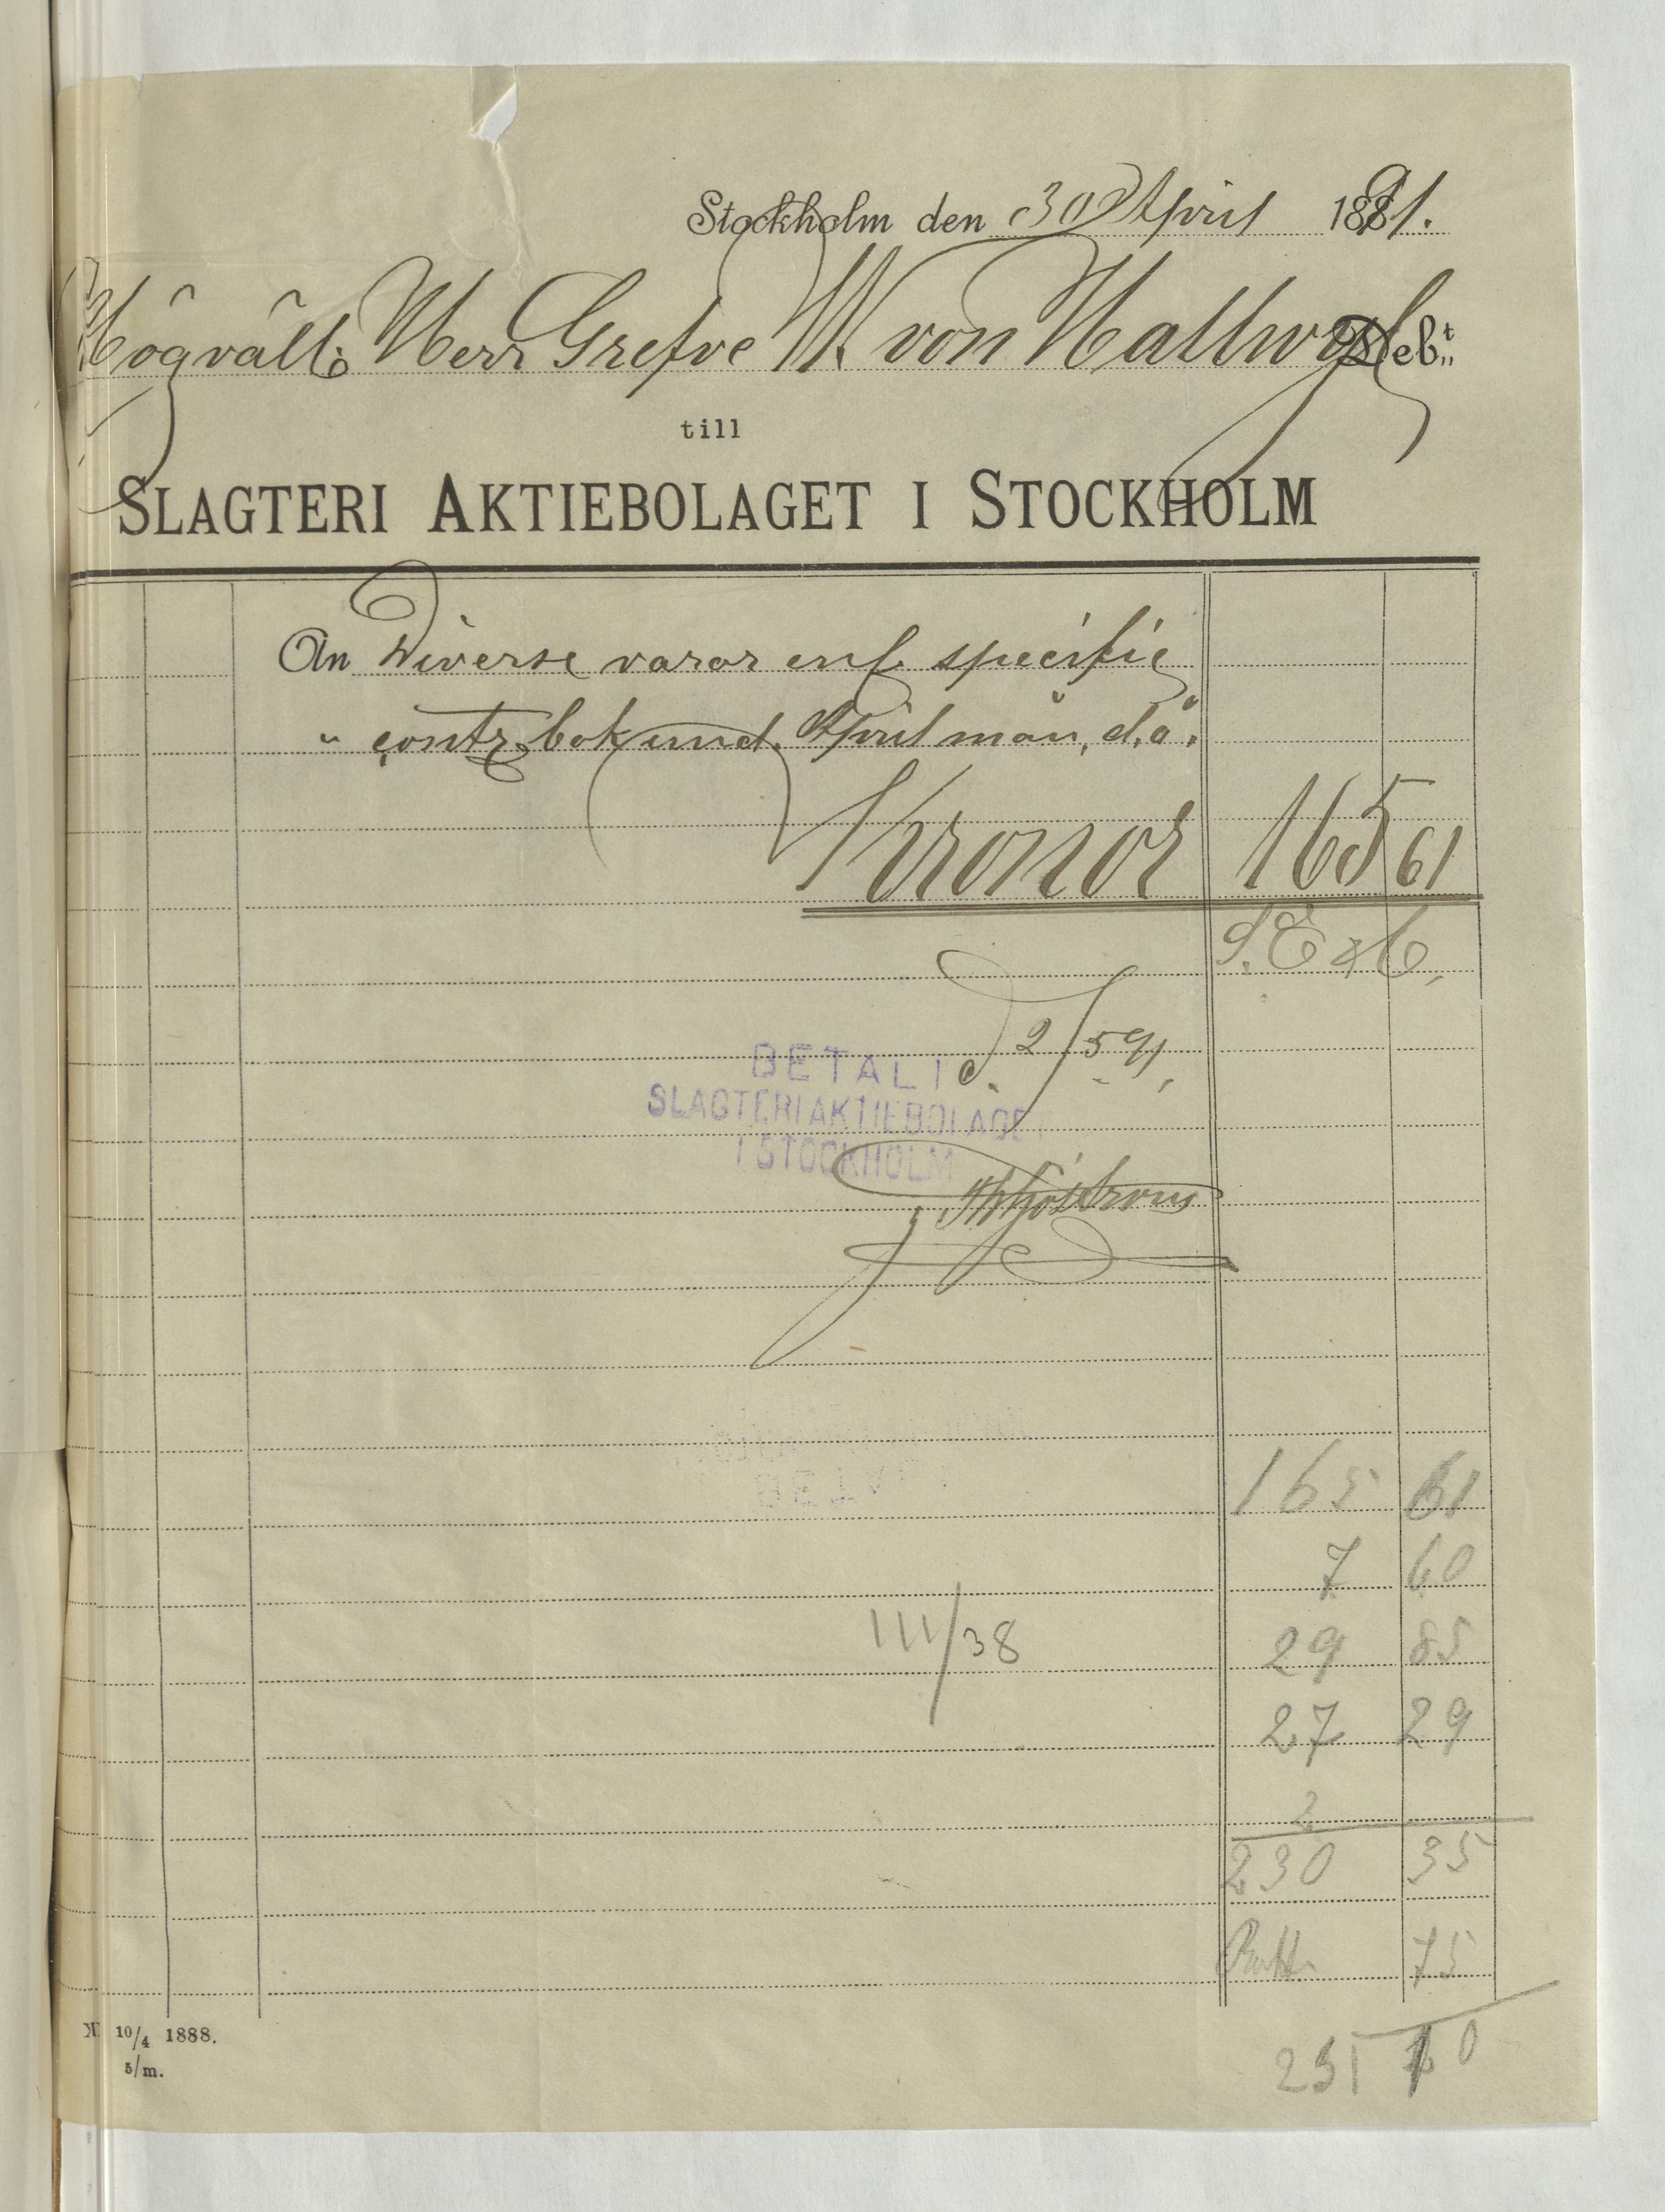 Stockholm den 30 April 1891.
Högvälb. Herr Grefve W. von Hallwyl Debt
till
SLAGTERI AKTIEBOLAGET I STOCKHOLM
An Diverse varor enl. specific
" contr. bok und. April mån. d.å.
Kronor 165 61
S. E. & O.
d. 2/5 91.
BETALT
SLAGTERIAKTIEBOLAGET
I STOCKHOLM
165 61
7 60
III/38 29 85
27 29
2
230 35
75
231 10
10/4 1888.
5/m.